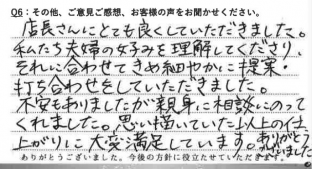 Q6:その他、ご意見ご感想、お客様の声をお聞かせください。
店長さんにとても良くしていただきました。
私たち夫婦の好みを理解してくださり、
それに合わせてきめ細やかに提案・
打ち合わせをしていただきました。
不安もありましたが親身に相談にのって
くれました。思い描いていた以上の仕
上がりに大変満足しています。ありがとう
ございました
ありがとうございました。今後の方針に役立たせていただきます。